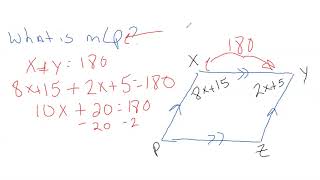 What is m∠P?
X+Y = 180
8x+15 + 2x+5=180
10x + 20 = 180
-20 -2
180
X
Y
8x+15
2x+5
P
Z